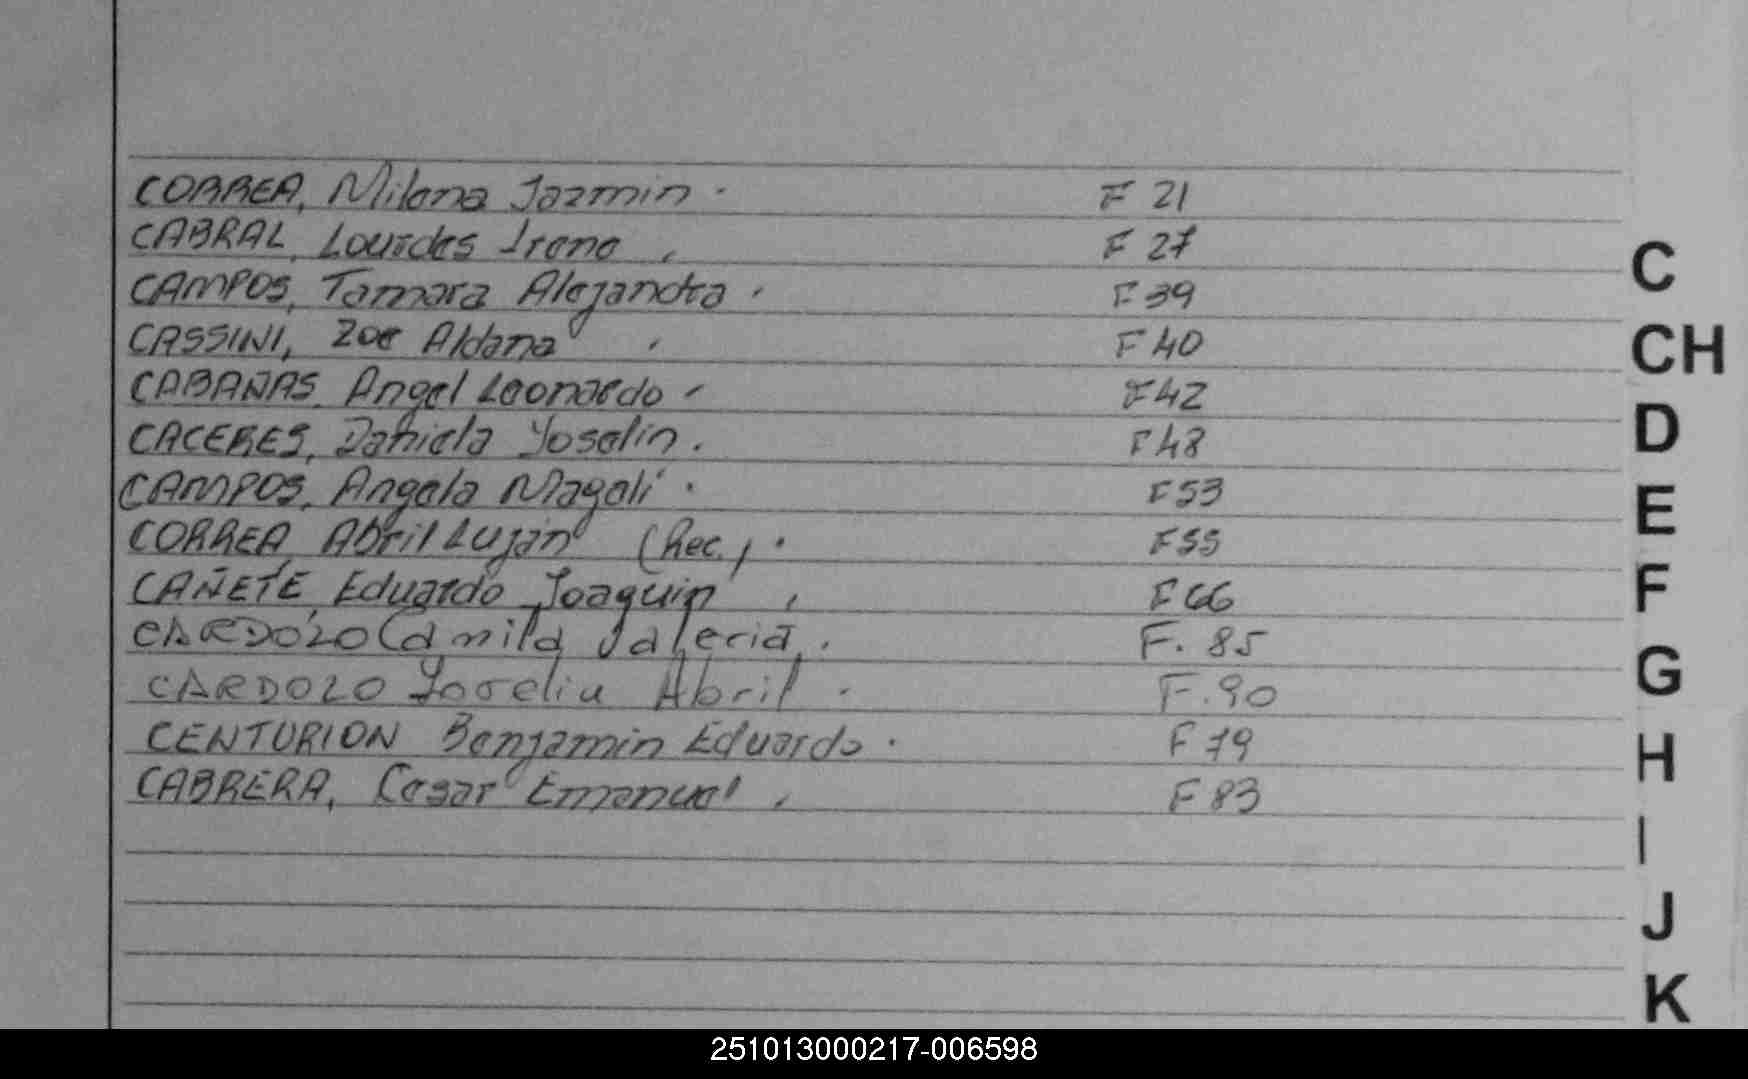 CORREA, Milena Jazmin. F 21
CABRAL, Lourdes Irene, F 27
CAMPOS, Tamara Alejandra. F 39
CASSINI, Zoe Aldana. F 40
CABAÑAS, Angel Leonardo. F 42
CACERES, Daniela Yoselin. F 48
CAMPOS, Angela Magali. F 53
CORREA, Abril Luján (Rec.). F 55
CAÑETE, Eduardo Joaquin, F 66
CARDOZO Camila Valeria. F. 85
CARDOZO Abril. F. 90
CENTURION Benjamin Eduardo. F 79
CABRERA, Cesar Emanuel. F 83
C
CH
D
E
F
G
H
I
J
K
251013000217-006598